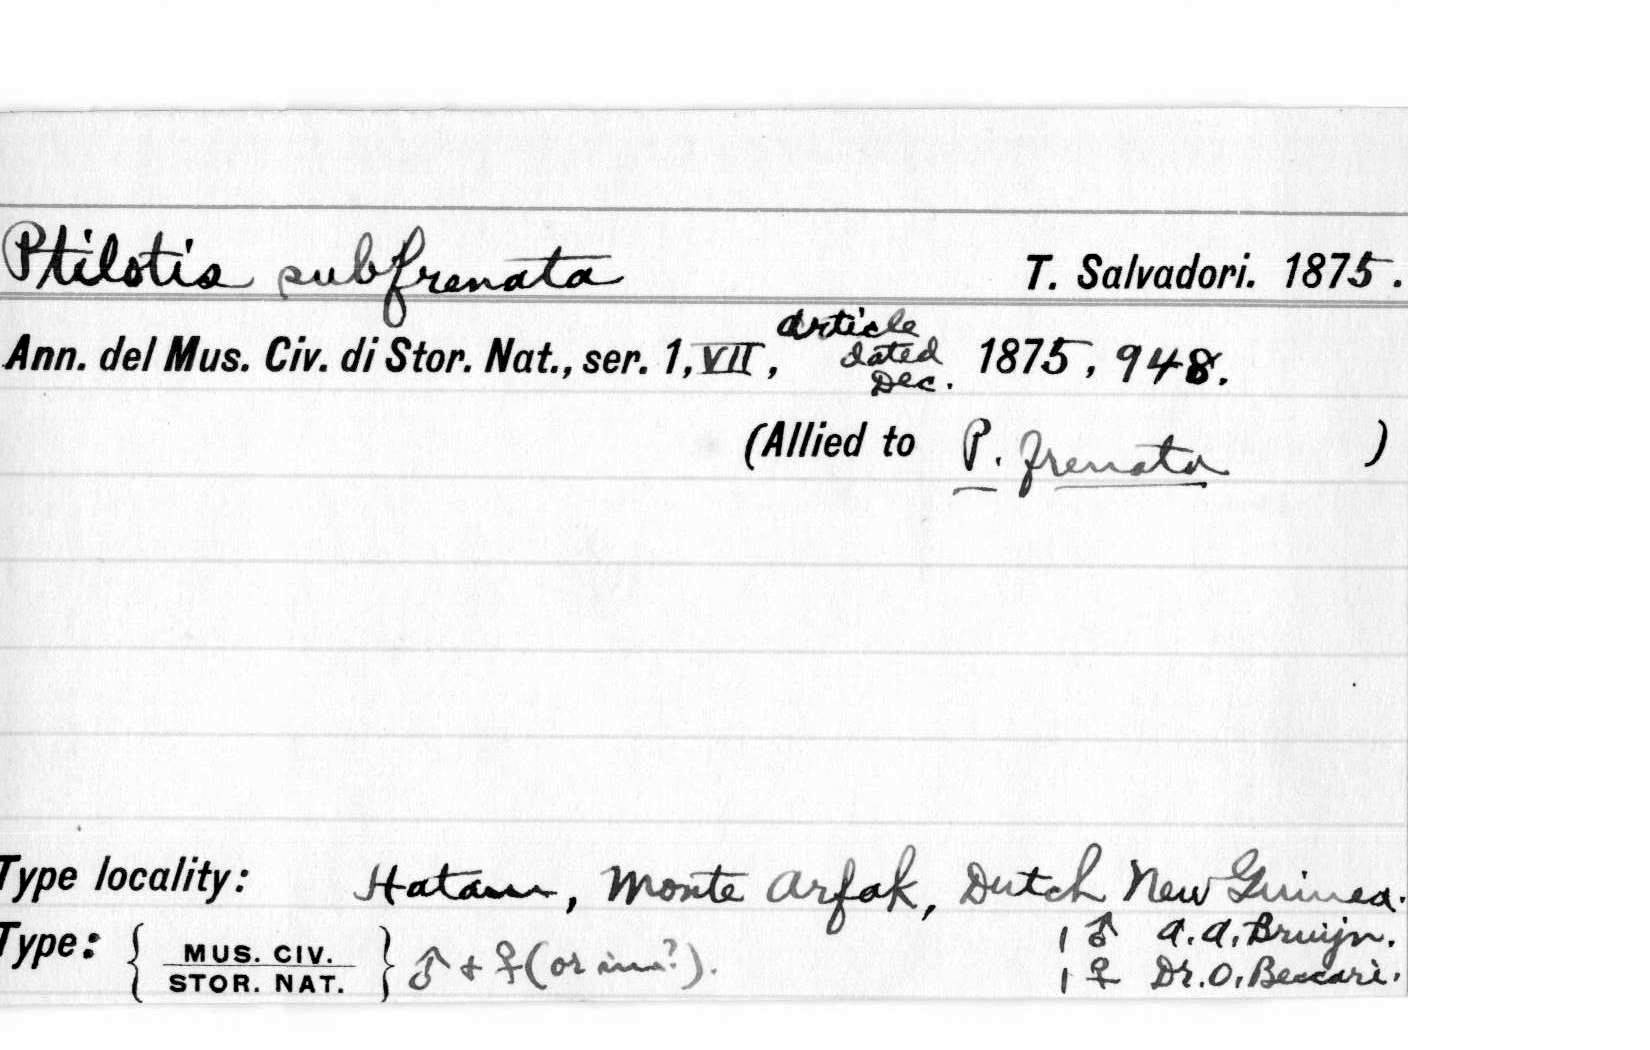 Ptilotis subfrenata T. Salvadori. 1875.
Ann. del Mus. Civ. di Stor. Nat., ser. 1, VII, article dated Dec. 1875, 948.
(Allied to P. frenata )
Type locality: Hatam, Monte Arfak, Dutch New Guinea.
Type: { MUS. CIV. STOR. NAT. } ♂ + ♀ (or imm?).
1 ♂ A. A. Bruijn.
1 ♀ Dr. O. Beccari.